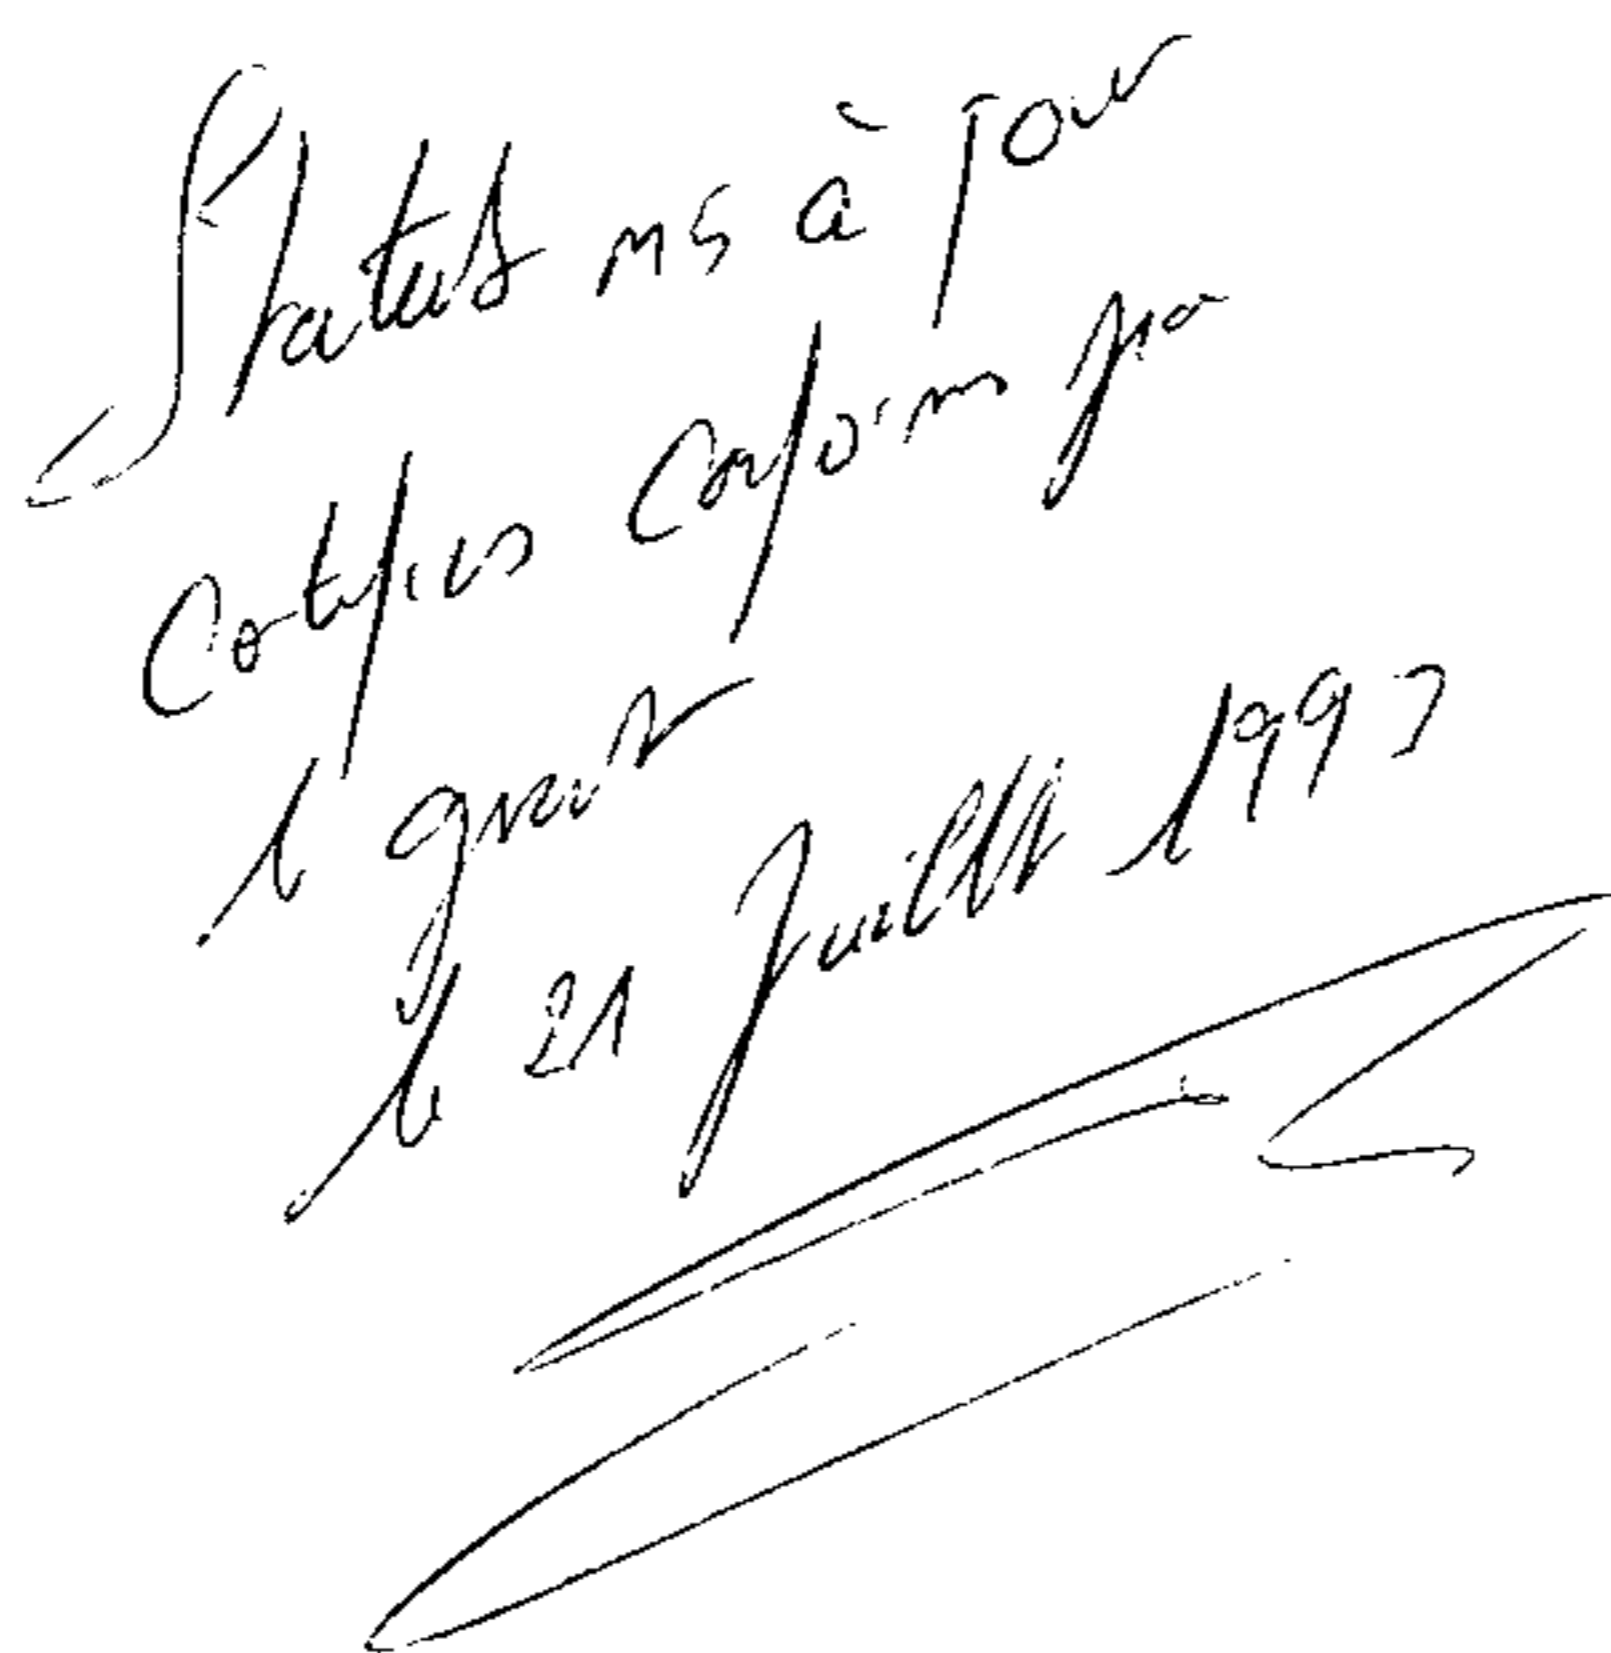 Statuts mis à jour
Certifiés conformes par
le gérant
le 21 Juillet 1997